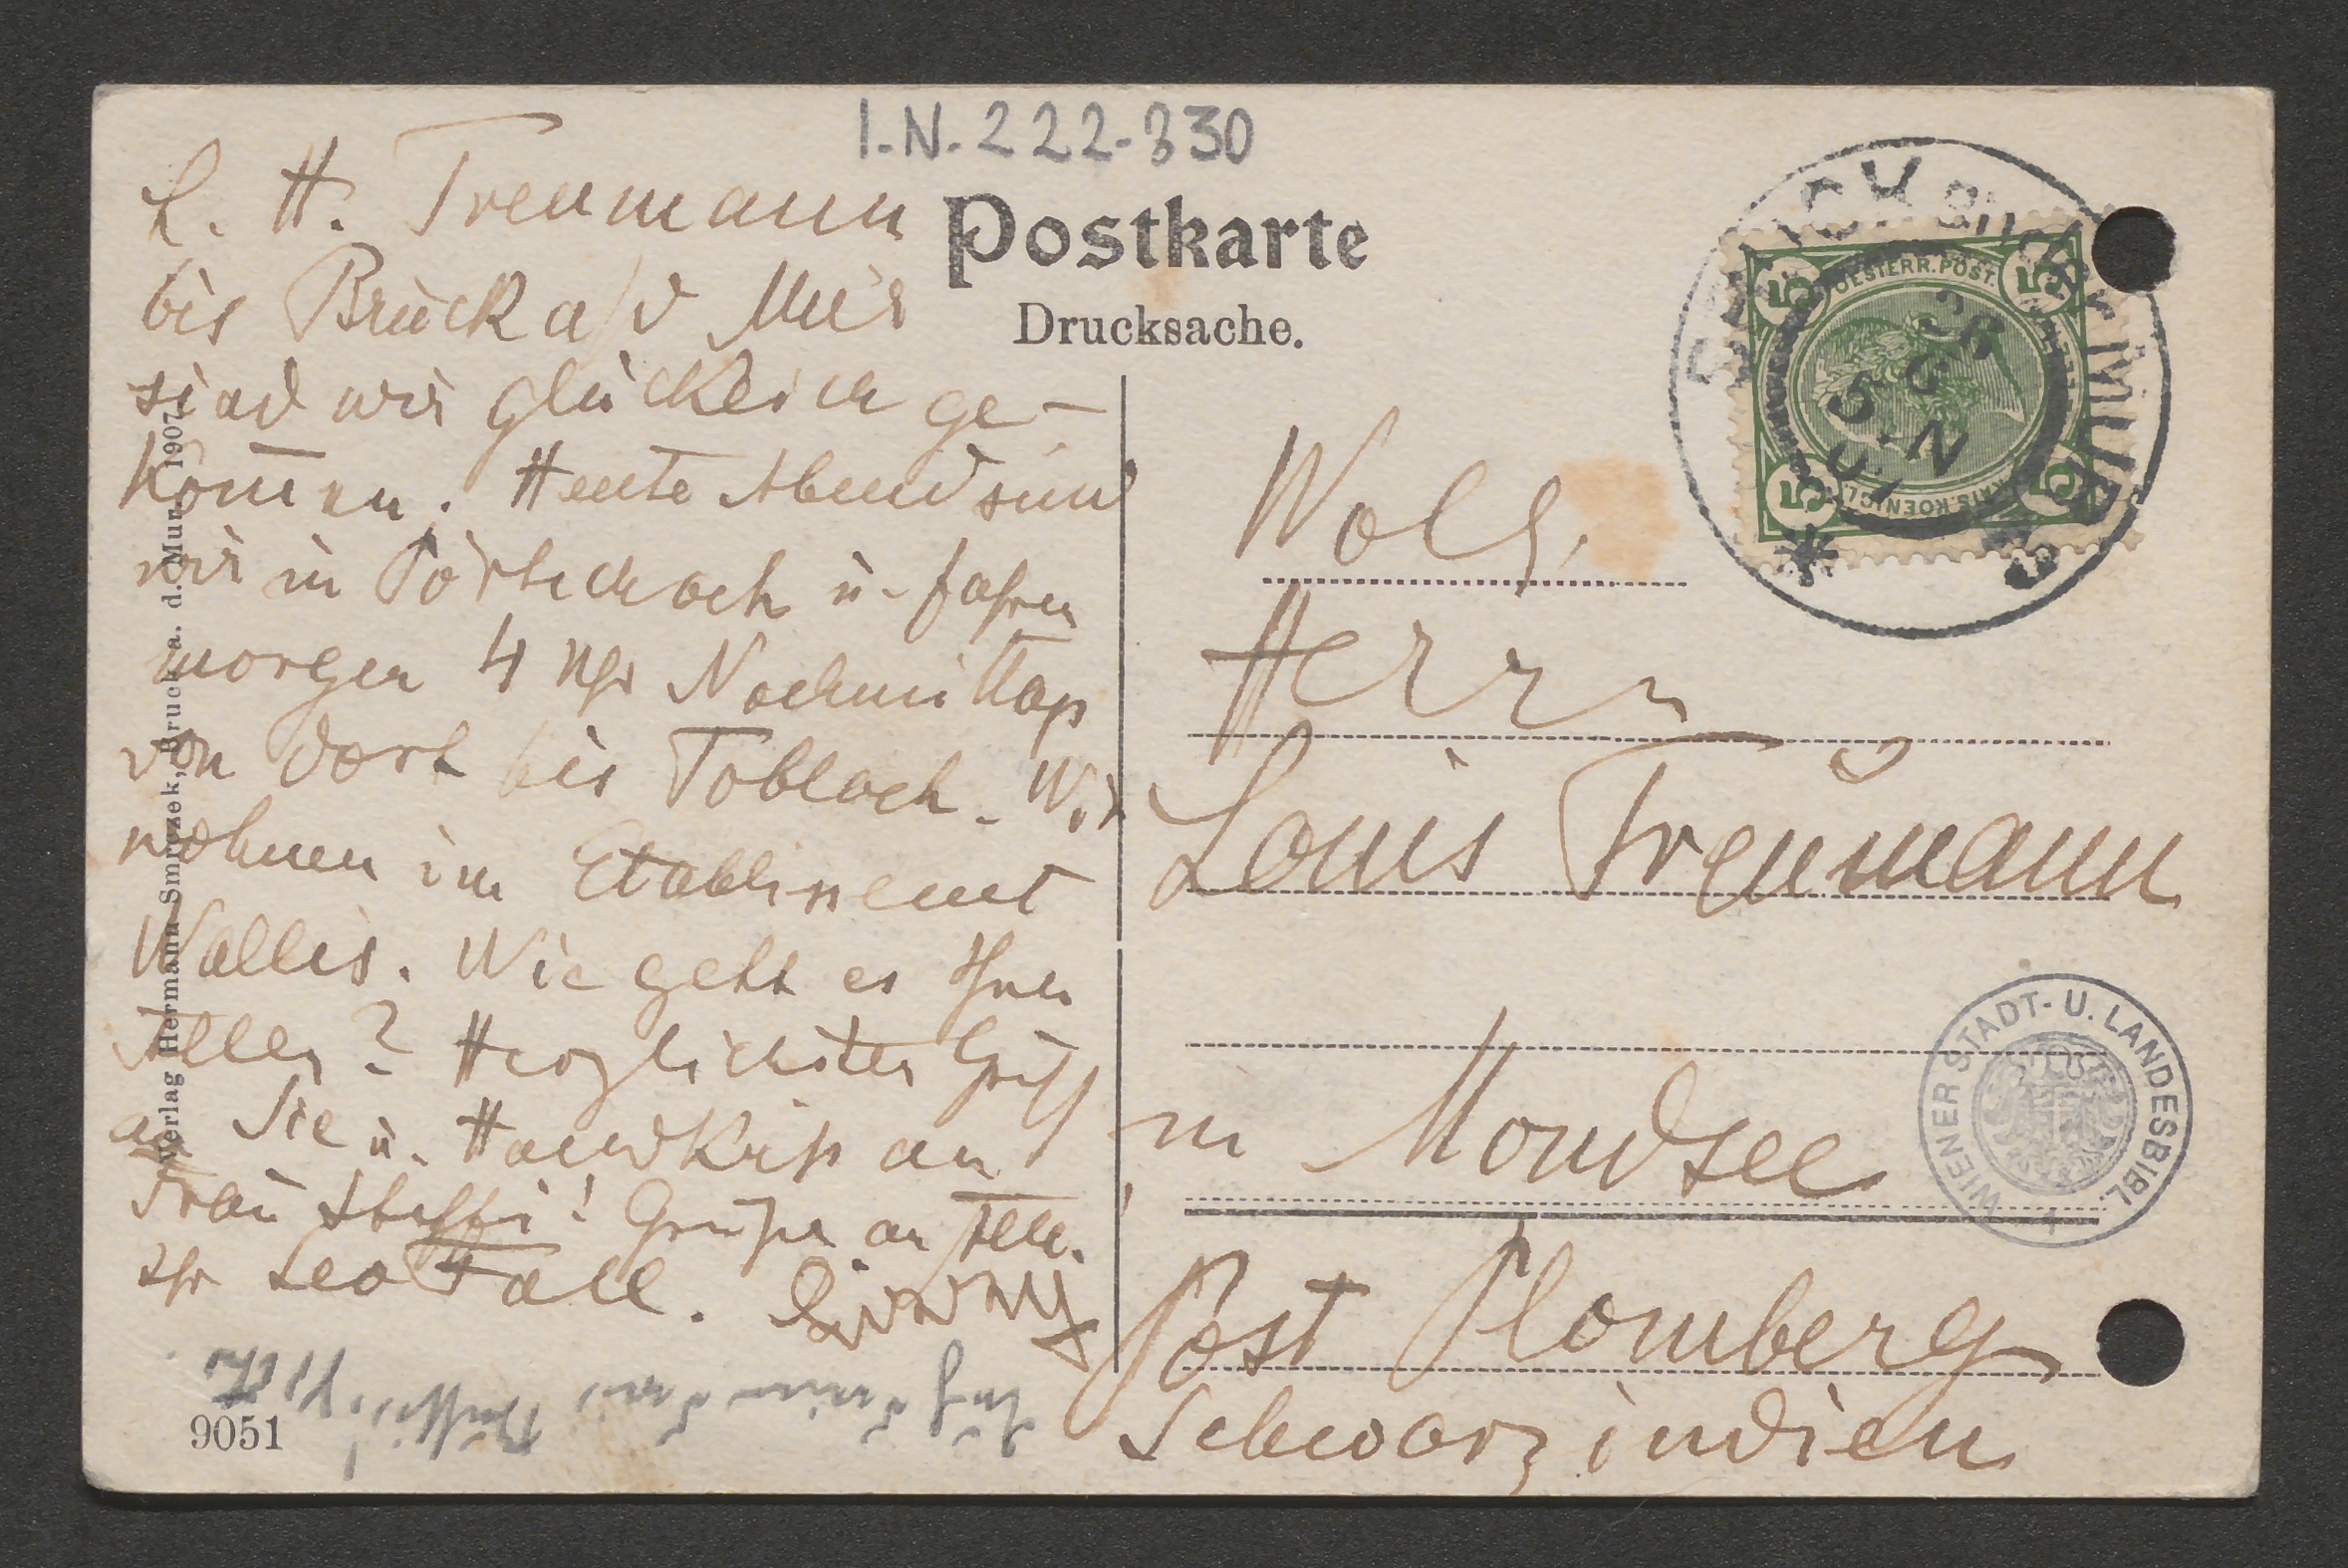 I.N. 222.330
Postkarte
Drucksache.
L. H. Treumann
bis Bruck a/d Mur
sind wir glücklich ge-
kom̄en. Heute Abend sind
wir in Pörtschach u. fahren
morgen 4 Uhr Nachmittag
von dort bis Toblach. Wir
wohnen im Etablissement
Wallis. Wie geht es Ihnen
Allen? Herzlichsten Gruß
an Sie u. Handkuß an
Frau Steffi! Grüße an Alle.
Ihr Leo Fall.
9051
Verlag Hermann Smrczek, Bruck a. d. Mur 1907.
Wolg.
Herrn
Louis Treumann
in Mondsee
Post Plomberg
Schwarzindien
OESTERR. POST.
5 5
5 5
26
6
5. N
07
WIENER STADT- U. LANDESBIBL.